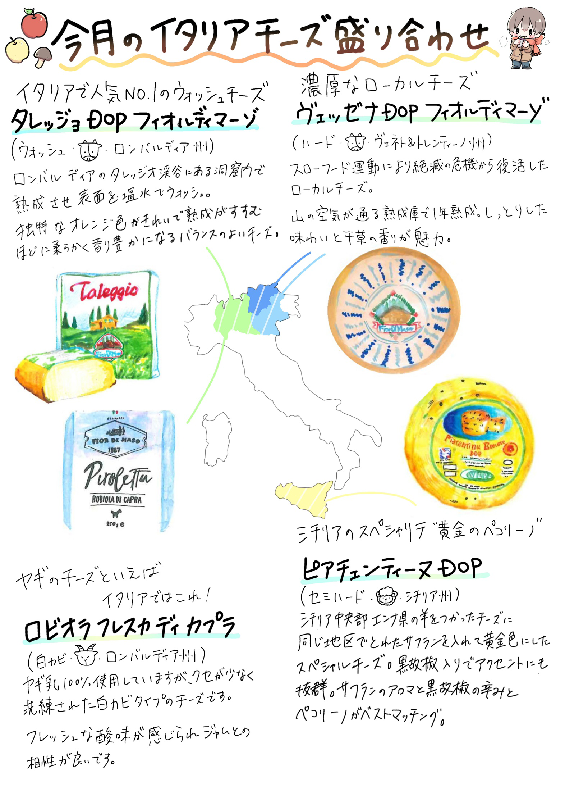 今月のイタリアチーズ盛り合わせ
イタリアで人気NO.1のウォッシュチーズ
タレッジョDOP フィオルディマーゾ
(ウォッシュ・ロンバルディア州)
ロンバルディアのタレッジオ渓谷にある洞窟内で
熟成させ表面を塩水でウォッシュ。
独特なオレンジ色がきれいで熟成がすすむ
ほどに柔らかく香り豊かになるバランスのよいチーズ。
濃厚なローカルチーズ
ヴェッゼナDOP フィオルディマーゾ
(ハード・ヴェネト&トレンティーノ州)
スローフード運動により絶滅の危機から復活した
ローカルチーズ。
山の空気が通る熟成庫で1年熟成。しっとりした
味わいと干草の香りが魅力。
Taleggio
FIOR DI MASO
1867
Piroletta
ROBIOLA DI CAPRA
Piacentinu Ennese
DOP
シチリアのスペシャリテ "黄金のペコリーノ"
ピアチェンティーヌDOP
(セミハード・シチリア州)
シチリア中央部エンナ県の羊をつかったチーズに
同じ地区でとれたサフランを入れて黄金色にした
スペシャルチーズ。黒胡椒入りでアクセントにも
抜群。サフランのアロマと黒胡椒の辛みと
ペコリーノがベストマッチング。
ヤギのチーズといえば
イタリアではこれ!
ロビオラ フレスカ ディ カプラ
(白カビ・ロンバルディア州)
ヤギ乳100%使用していますが、クセが少なく
洗練された白カビタイプのチーズです。
フレッシュな酸味が感じられ ジャムとの
相性が良いです。